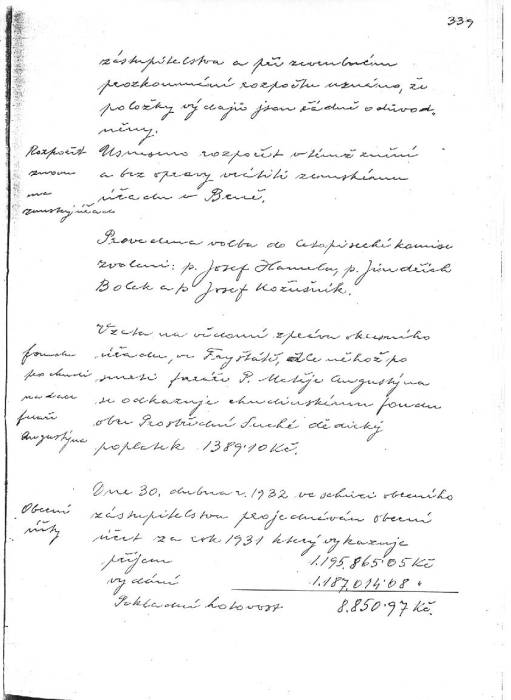 339
zástupitelstva a při zevrubném
prozkoumání rozpočtu uznáno, že
položky výdajů jsou řádně odůvod-
něny.
Rozpočet
znovu
na
zemský úřad
Usneseno rozpočet v témž znění
a bez opravy vrátiti zemskému
úřadu v Brně.
Provedena volba do letopisecké komise
zvoleni: p. Josef Hamela, p. Jindřich
Bolek a p Josef Kožušník.
fondu
po chudi
nadace
faráře
Augustýna
Vzata na vědomí zpráva okresního
úřadu, ve Fryštátě, dle něhož po
smrti faráře P. Matěje Augustýna
se odkazuje chudinskému fondu
obce Prostřední Suché dědický
poplatek 1389·10 Kč.
Obecní
účty
Dne 30. dubna r. 1932 ve schůzi obecního
zástupitelstva projednáván obecní
účet za rok 1931 který vykazuje
příjem 1.195.865·05 Kč
vydání 1.187.014·08 "
Pokladní hotovost 8.850·97 Kč.